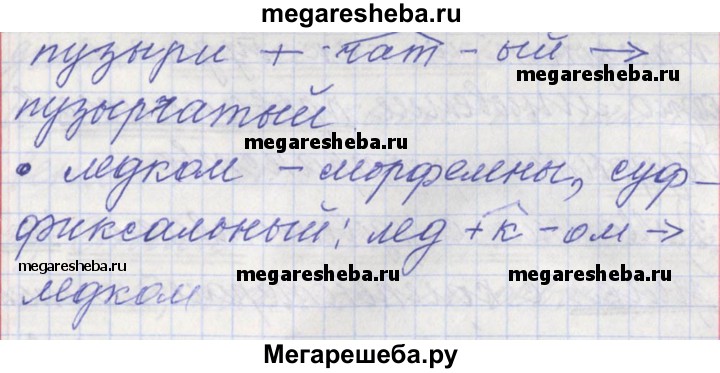 megaresheba.ru
пузыри + -чат - ый →
megaresheba.ru
пузырчатый
megaresheba.ru
• ледком - морфемны, суф-
фиксальный: лед + к - ом →
megaresheba.ru
megaresheba.ru
megaresheba.ru
ледком
Мегарешеба.ру